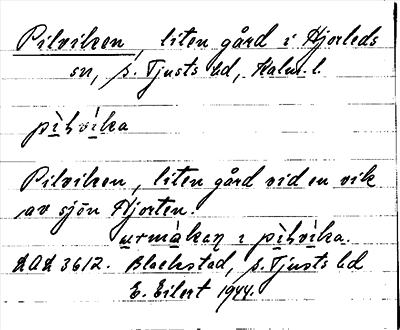 Pilviken, liten gård i Hjorteds
sn, s. Tjusts hd, Kalm. l.
pìlvìka
Pilviken, liten gård vid en vik
av sjön Hjorten.
i pìlvìka.
3612. Blackstad, s. Tjusts hd
E. Eilert 1944.